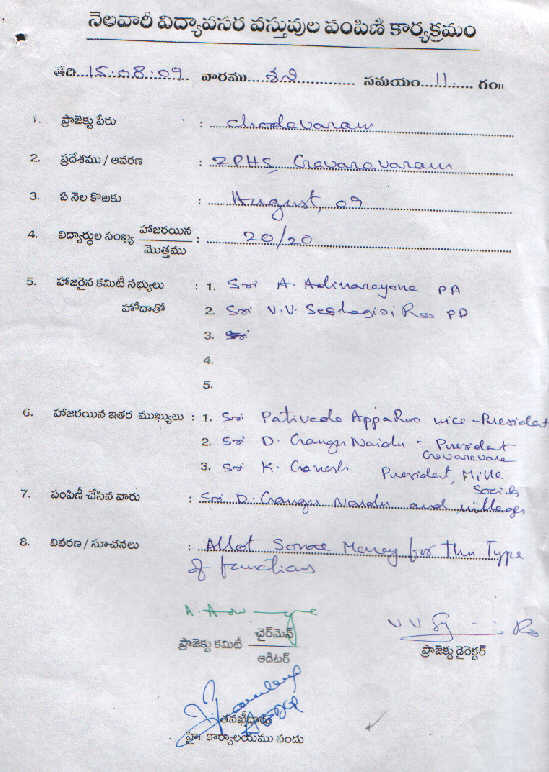 నెలవారీ విద్యావసర వస్తువుల పంపిణీ కార్యక్రమం
తేది 15.08.09 వారము శని సమయం 11 గం॥
1. ప్రాజెక్టు పేరు : Chodavaram
2. ప్రదేశము / ఆవరణ : ZPHS, Gavaravaram
3. ఏ నెల కొఱకు : August, 09
4. విద్యార్థుల సంఖ్య హాజరయిన / మొత్తము : 20/20
5. హాజరైన కమిటీ సభ్యులు : 1. Sri A. Adinarayana PA
హోదాతో 2. Sri V.V. Seshagiri Rao PD
3.
4.
5.
6. హాజరయిన ఇతర ముఖ్యులు : 1. Sri Appa Rao vice-President
2. Sri D. Gangu Naidu - President
3. Sri K. Ganesh President, Milk
7. పంపిణీ చేసిన వారు : Sri D. Gangu Naidu and villages
8. వివరణ / సూచనలు : Allot Some Money for this Type
of functions
ప్రాజెక్టు కమిటీ చైర్మెన్ / ఆడిటర్
ప్రాజెక్టు డైరెక్టర్
కార్యాలయము నందు